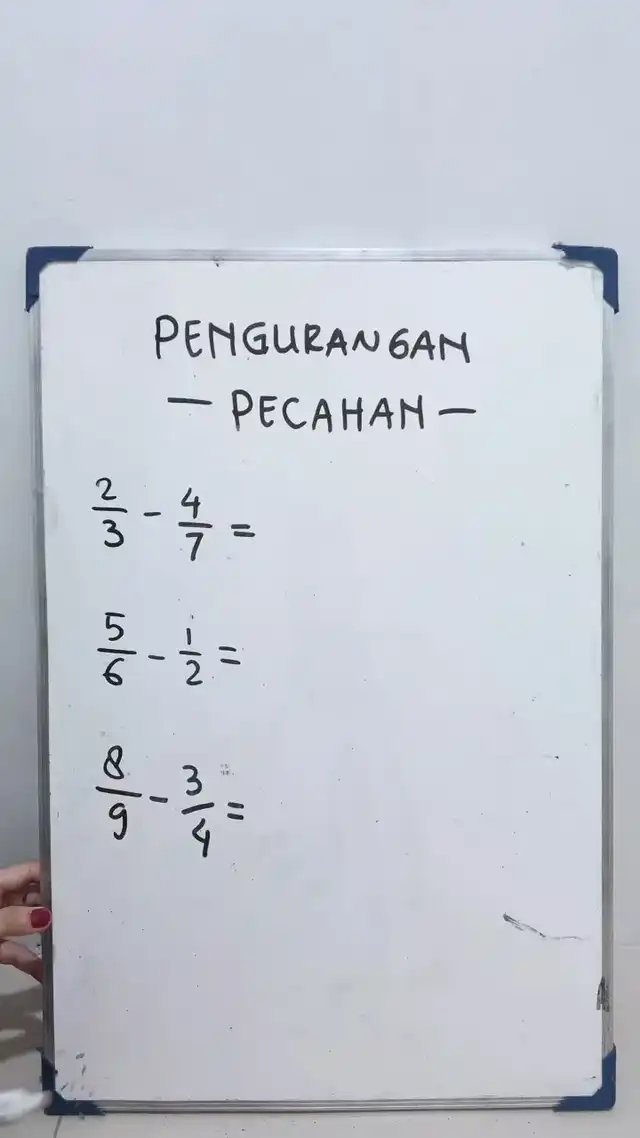 PENGURANGAN
- PECAHAN -
2/3 - 4/7 =
5/6 - 1/2 =
8/9 - 3/4 =